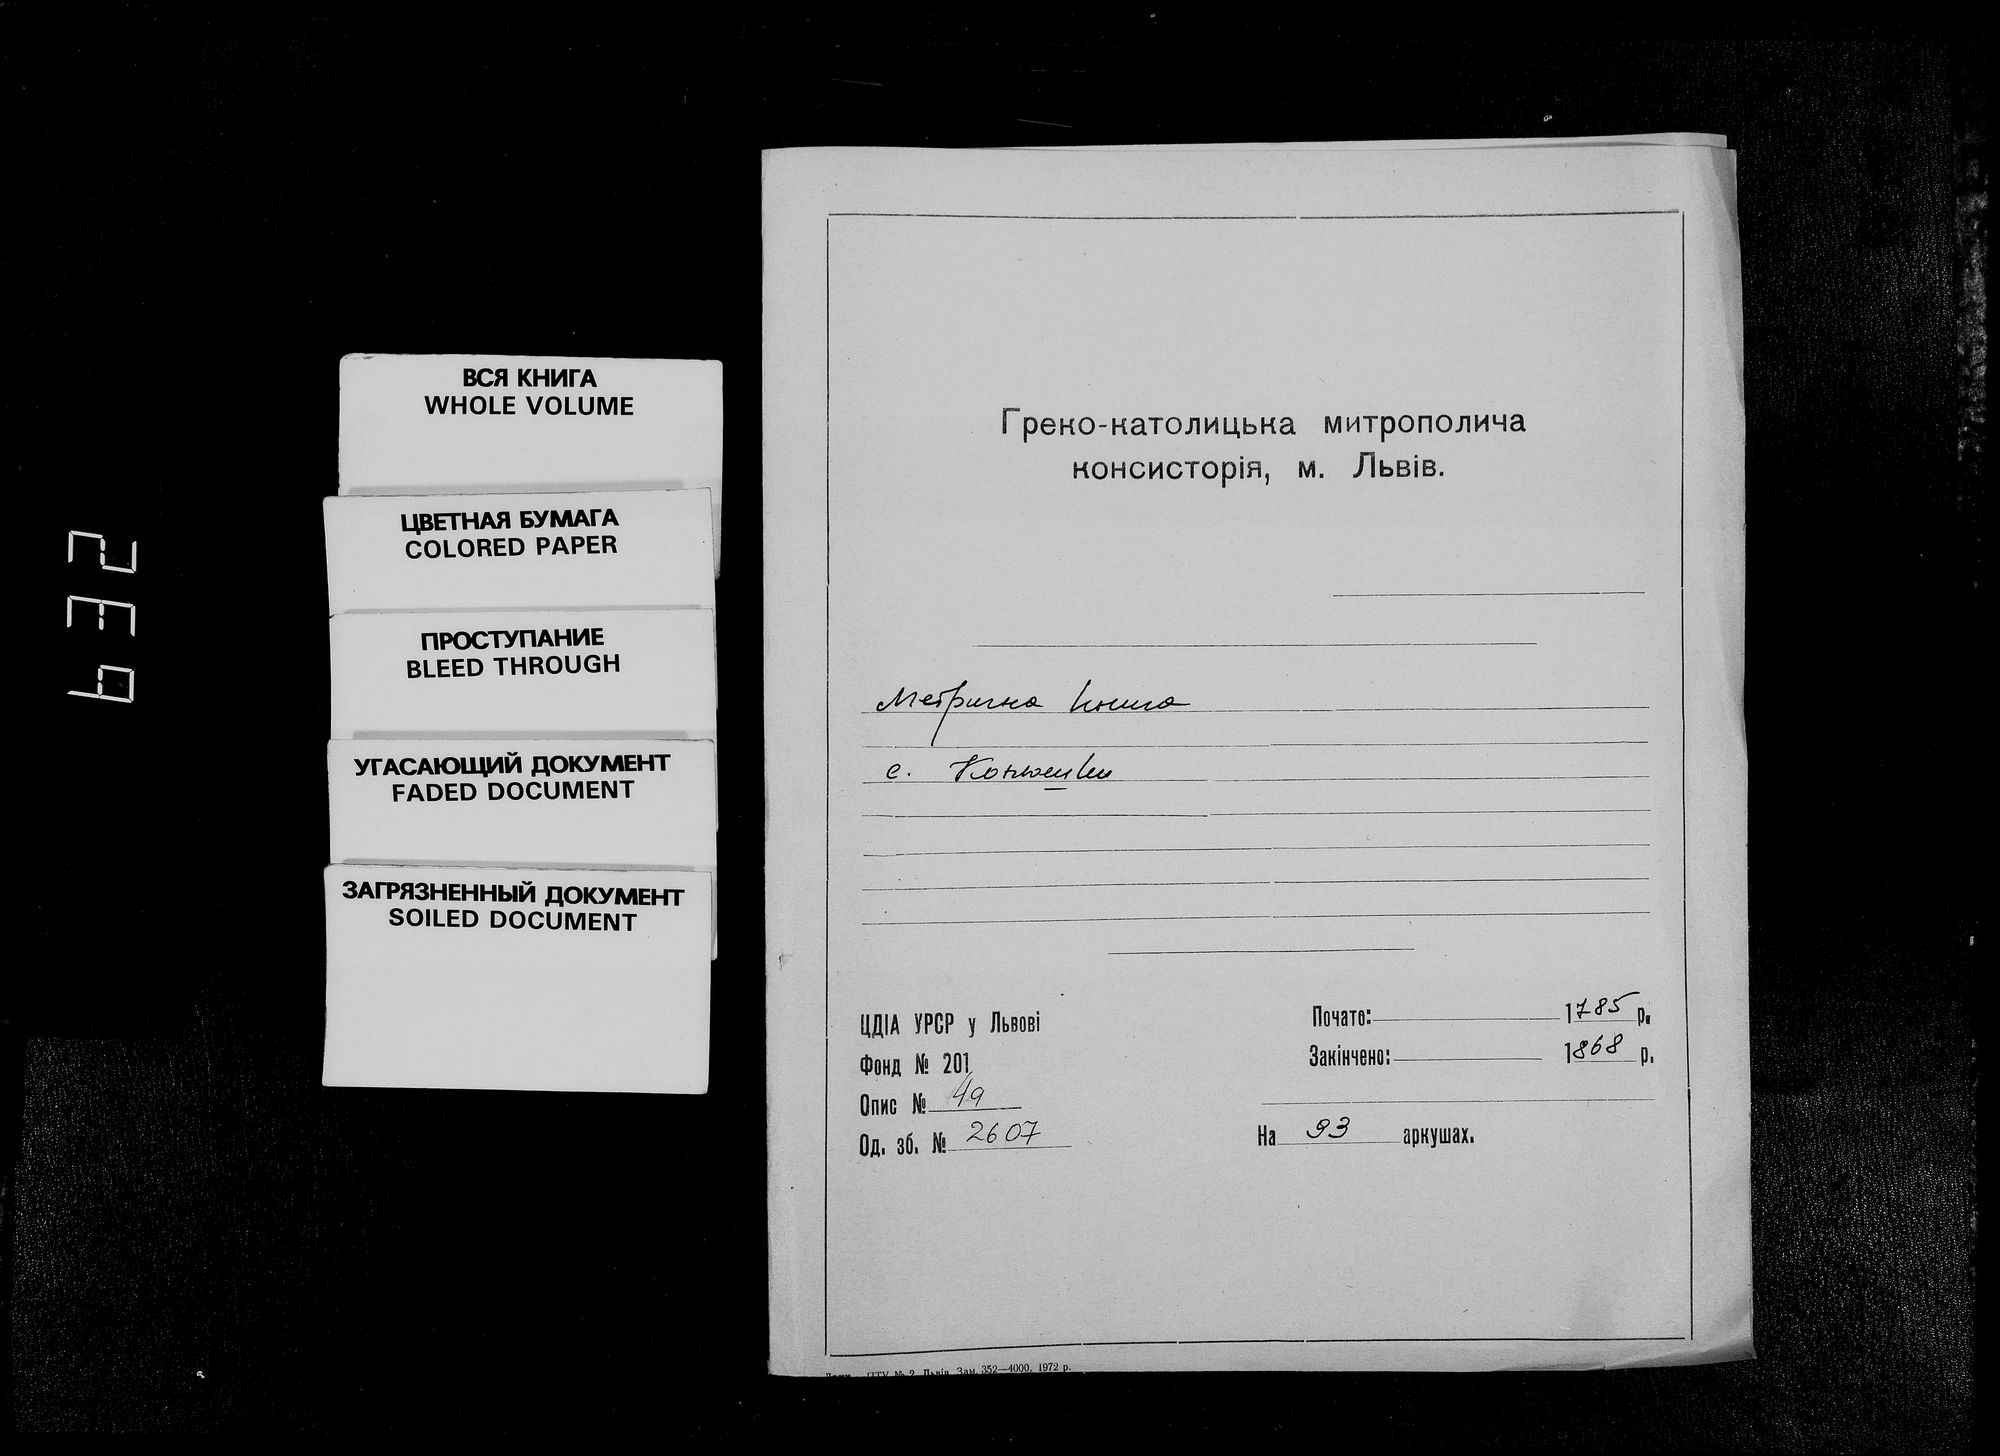 632
ВСЯ КНИГА
WHOLE VOLUME
ЦВЕТНАЯ БУМАГА
COLORED PAPER
ПРОСТУПАНИЕ
BLEED THROUGH
УГАСАЮЩИЙ ДОКУМЕНТ
FADED DOCUMENT
ЗАГРЯЗНЕННЫЙ ДОКУМЕНТ
SOILED DOCUMENT
Греко-католицька митрополича
консисторія, м. Львів.
Метрична книга
с. Конюшки
ЦДІА УРСР у Львові
Фонд № 201
Опис № 4а
Од. зб. № 2607
Почато: 1785 р.
Закінчено: 1868 р.
На 93 аркушах.
№ 2 Львів Зам. 352—4000. 1972 р.